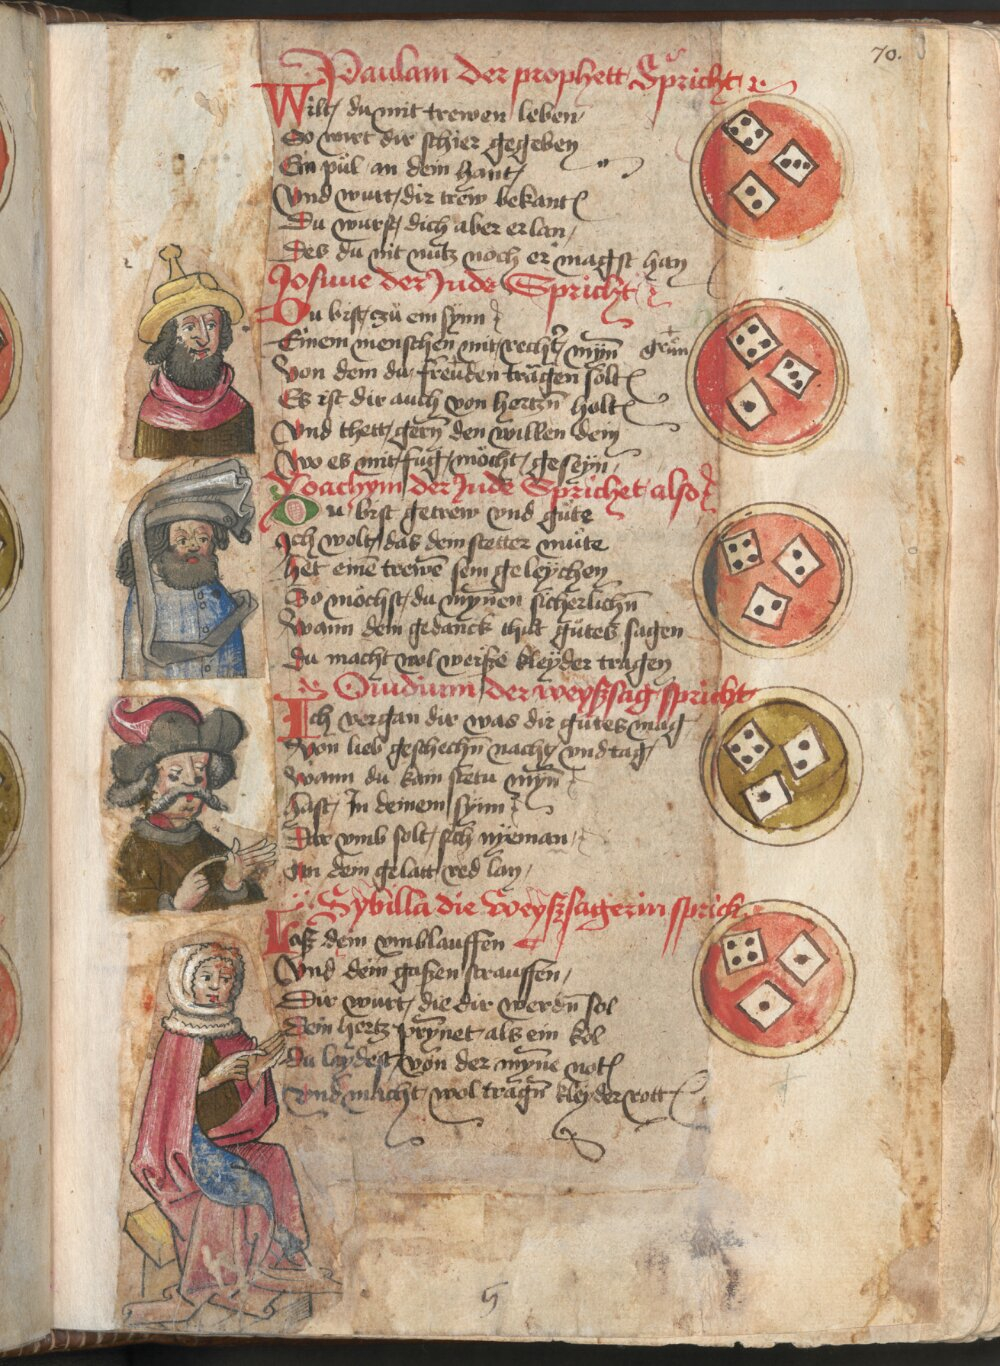 70.
Paulam der prophett Spricht
Wilt du mit trewen leben
So wirt dir schier gegeben
Ein pul an dein hant
Vnd wurt dir trew bekant
Du wurst dich aber erlan
Des du nit nutz noch er magst han
Josuue der Jude Spricht
Du bist czu ein synn
Einem menschen mit recht mynn
grün
Von dem du freuden tragen solt
Es ist dir auch von hertzn holt
Vnd thett gern den willen dein
Wo es mit fug mocht geseyn
Joachym der Jude Sprichet also
Du bist getrew vnd güte
Ich wolt das dem stetter müte
Het eine trewe sein geleychen
So mochst du mynnen sicherlichn
Wann dein gedanck thut gutes sagen
Du macht wol weisse kleyder tragen
Ouidium der weyssag spricht
Ich vergan dir was dir gutes mag
Von lieb geschechn nacht vnd tag
Wann du kain stetu mynn
hast In deinem synn
Dar vmb solt sich nyeman
An dein gelatt red lan
Sybilla die Weyssagerin sprich
Lass dein vmblauffen
Vnd dein gassen strauffen
Dir wurt die dir werdn sol
Dein hertz prynnet als ein kol
Du leydest von der mynne not
Vnd macht wol tragn kleyder rott